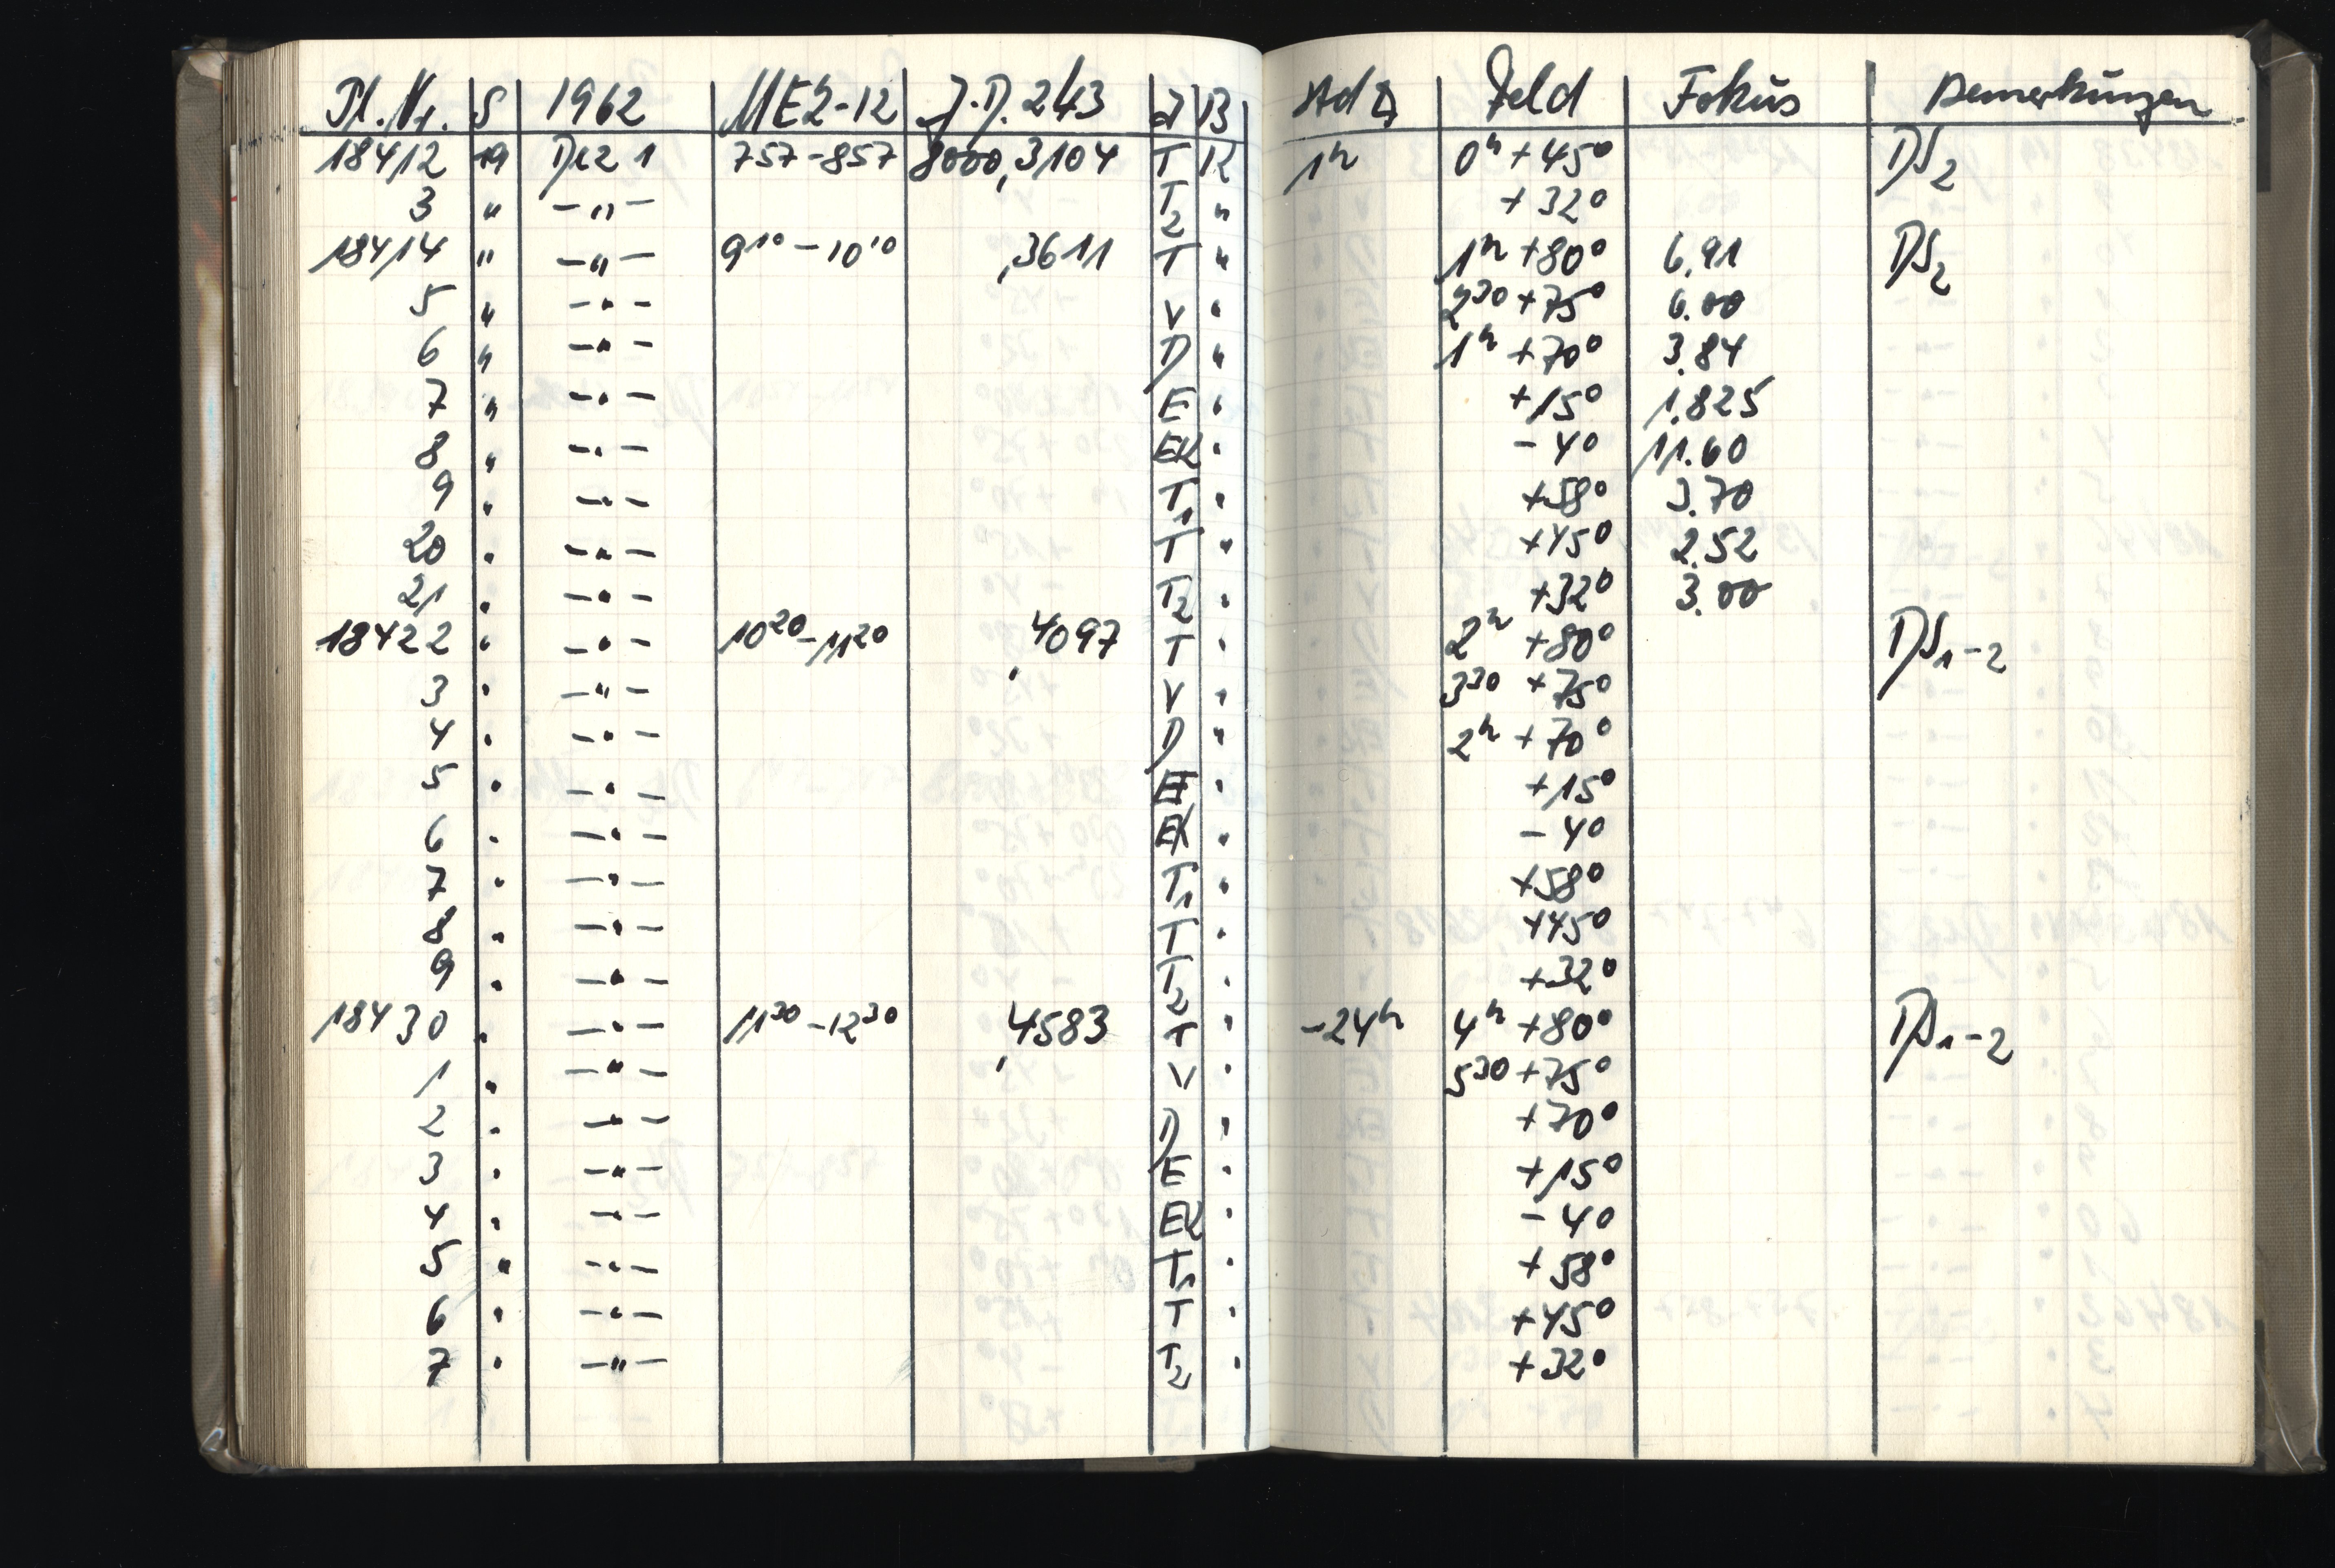 Pl. Nr. S 1962 MEZ-12 J.D. 243 J B Feld Fokus Bemerkungen
18412 19 Dez 1 757-857 8000,3104 T R 1h 0h +45° DS2
3 " -"- T2 " +32°
18414 " -"- 9¹⁰-10¹⁰ ,3611 T " 1h +80° 6.91 DS2
5 " -"- V " 2³⁰ +75° 6.00
6 " -"- D " 1h +70° 3.84
7 " -"- E " +15° 1.825
8 " -"- EK " -4° 11.60
9 " -"- T1 " +58° 3.70
20 " -"- T " +45° 2.52
21 " -"- T2 " +32° 3.00
18422 " -"- 10²⁰-11²⁰ ,4097 T " 2h +80° DS1-2
3 " -"- V " 3³⁰ +75°
4 " -"- D " 2h +70°
5 " -"- E " +15°
6 " -"- EK " -4°
7 " -"- T1 " +58°
8 " -"- T " +45°
9 " -"- T2 " +32°
18430 " -"- 11³⁰-12³⁰ ,4583 T " -24h 4h +80° DS1-2
1 " -"- V " 5³⁰ +75°
2 " -"- D " +70°
3 " -"- E " +15°
4 " -"- EK " -4°
5 " -"- T1 " +58°
6 " -"- T " +45°
7 " -"- T2 " +32°